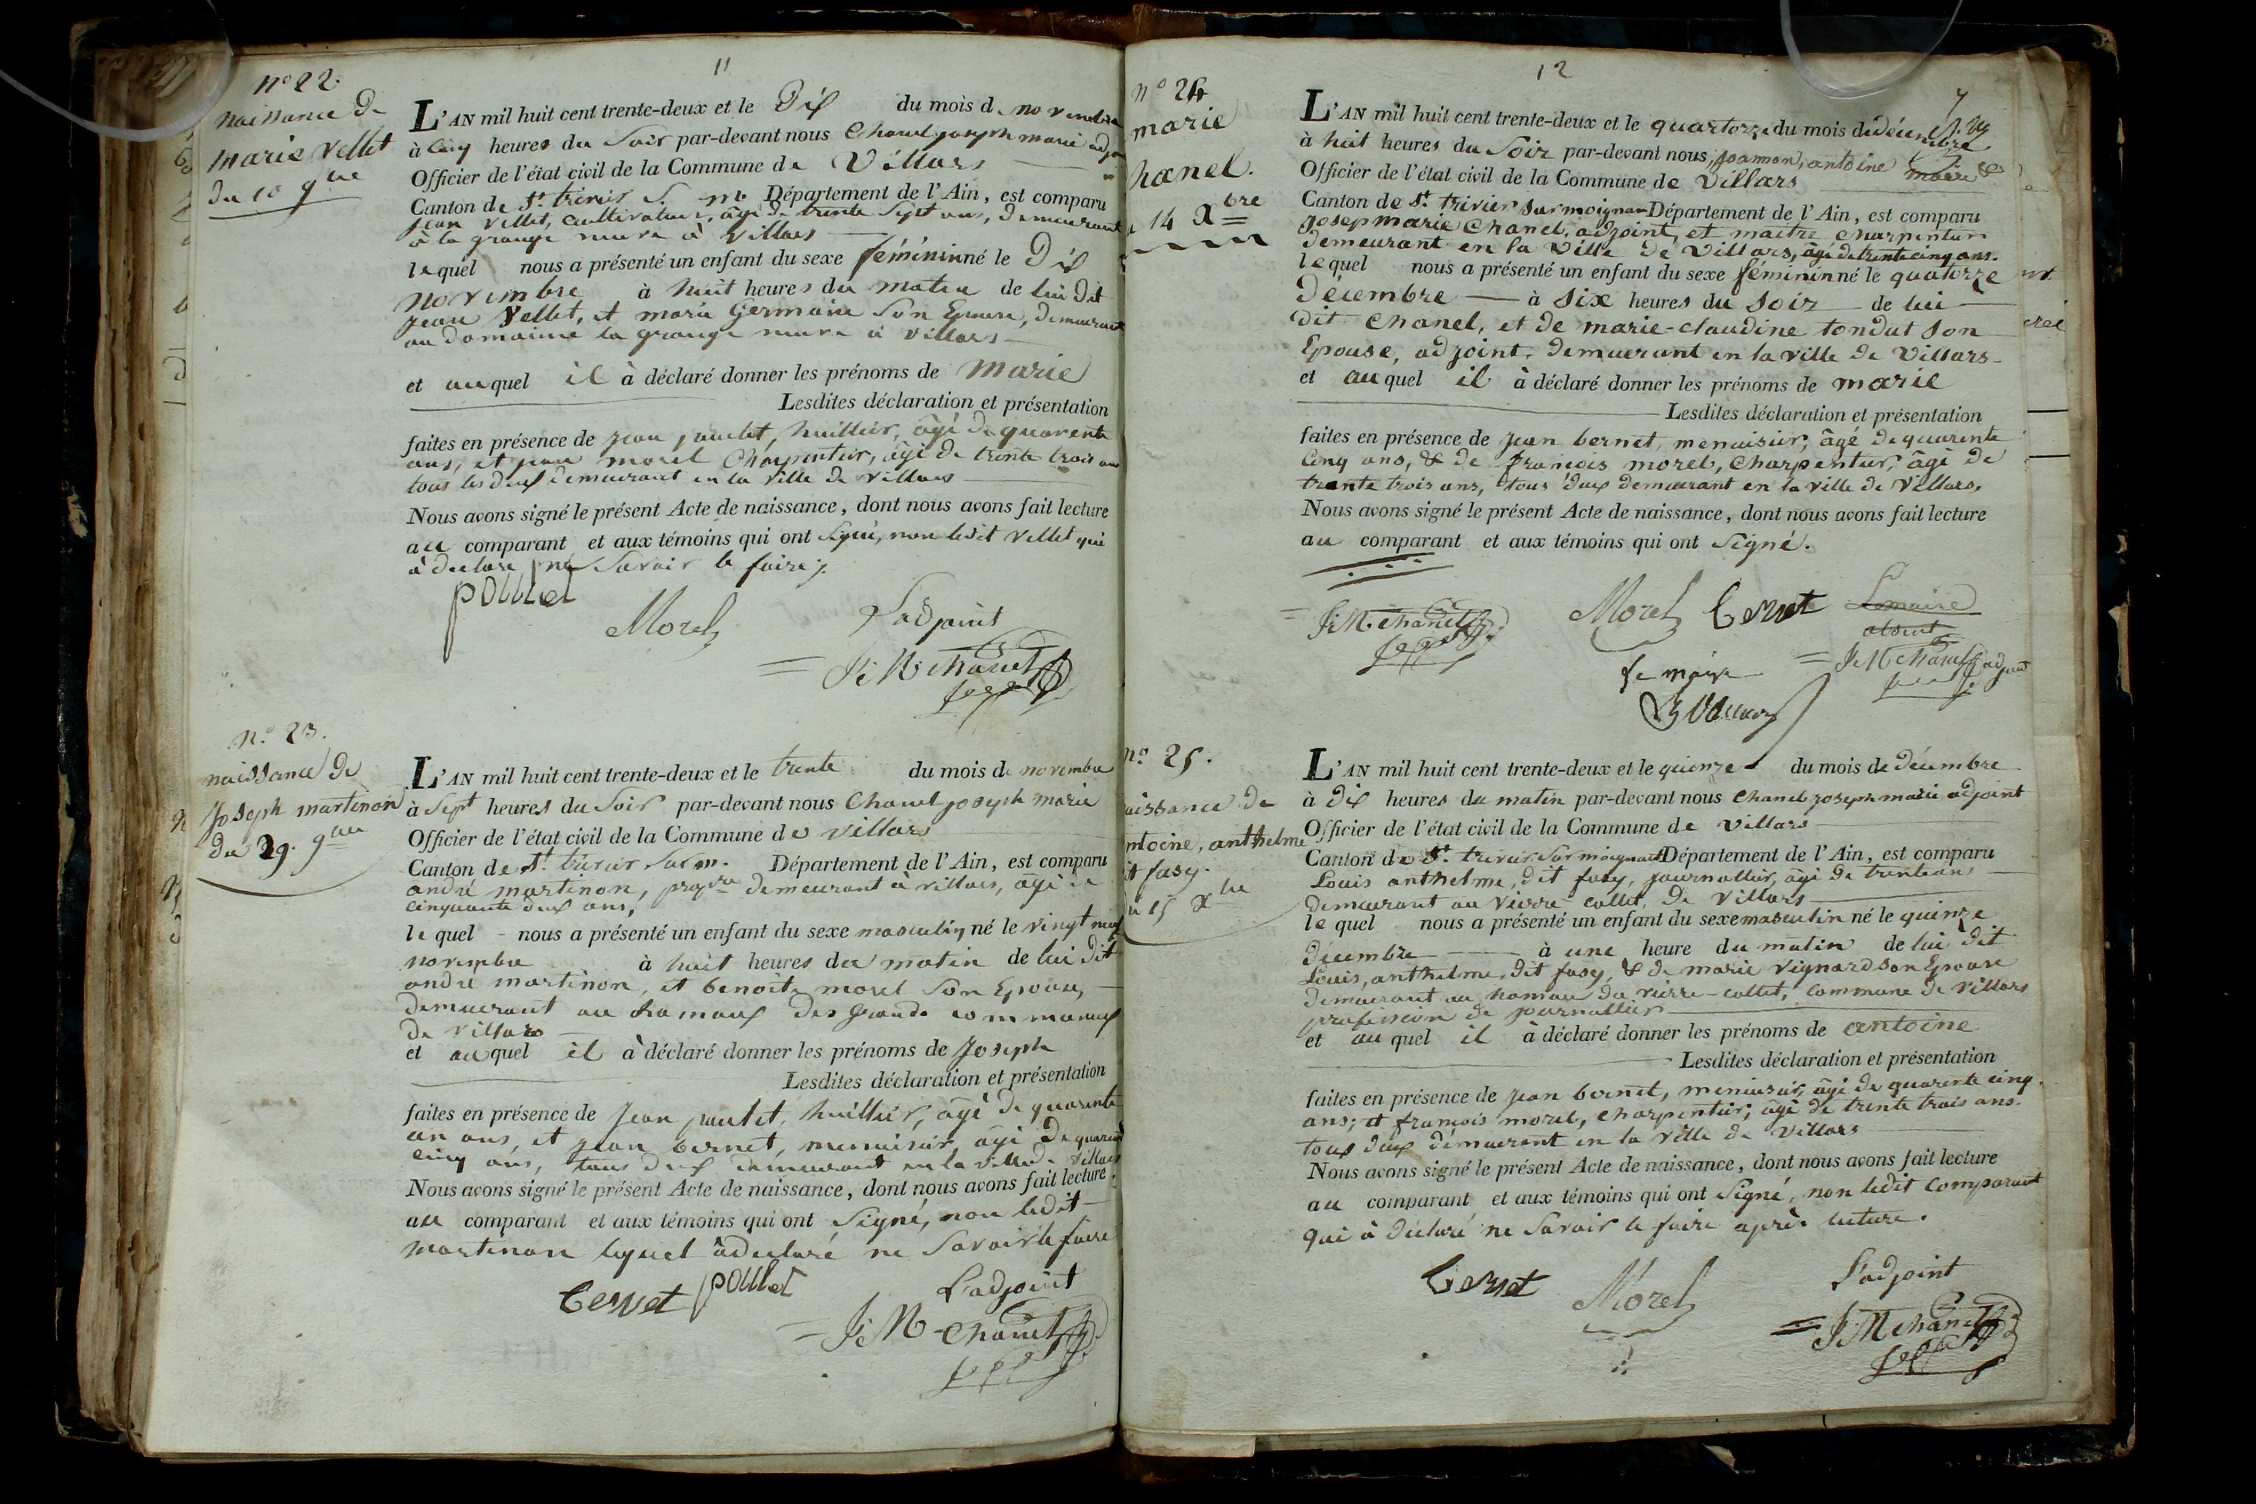 11
nº 22.
naissance de
marie Vellet
du 10 9bre
L'AN mil huit cent trente-deux et le Dix du mois de novembre
à cinq heures du Soir par-devant nous Chanel joseph marie adjoint
Officier de l'état civil de la Commune de Villars
Canton de St. trivier S. m. Département de l'Ain, est comparu
jean Vellet, cultivateur, âgé de trente Sept ans, demeurant
à la grange neuve à Villars
lequel nous a présenté un enfant du sexe féminin né le Dix
novembre à huit heures du matin de lui Dit
jean Vellet, et marie Germaine Son Epouse, demeurant
au domaine la grange neuve à Villars
et auquel il à déclaré donner les prénoms de marie
Lesdites déclaration et présentation
faites en présence de jean poulet, huillier, âgé de quarente
ans, et jean morel Charpentier, âgé de trente trois ans
tous les deux demeurant en la Ville de Villars
Nous avons signé le présent Acte de naissance, dont nous avons fait lecture
au comparant et aux témoins qui ont Signé, non ledit Vellet qui
à déclaré ne Savoir le faire
poullet
Morel
L'adjoint
J. M. chanel
nº 23.
naissance de
Joseph martinon
du 29. 9bre
L'AN mil huit cent trente-deux et le trente du mois de novembre
à Sept heures du Soir par-devant nous Chanel joseph marie
Officier de l'état civil de la Commune de Villars
Canton de St. trivier Sur m. Département de l'Ain, est comparu
andré martinon, demeurant à villars, âgé de
cinquante deux ans,
lequel nous a présenté un enfant du sexe masculin né le vingt neuf
novembre à huit heures du matin de lui Dit
andré martinon, et benoite morel Son Epouse,
demeurant au hamaux des Grande communes
de Villars
et auquel il à déclaré donner les prénoms de Joseph
Lesdites déclaration et présentation
faites en présence de Jean poulet, huillier, âgé de quarente
un ans, et jean bernet, menuisier, âgé de quarente
cinq ans, tous deux demeurant en la ville de Villars
Nous avons signé le présent Acte de naissance, dont nous avons fait lecture.
au comparant et aux témoins qui ont Signé, non ledit
martinon lequel à déclaré ne Savoir le faire
bernet poullet
L'adjoint
J. M. chanel
12
nº 24
marie
hanel.
14 Xbre
L'AN mil huit cent trente-deux et le quartorze du mois de décembre
à huit heures du Soir par-devant nous, joannon, antoine maire
Officier de l'état civil de la Commune de Villars
Canton de St. trivier sur moignan Département de l'Ain, est comparu
josep marie Chanel, adjoint, et maitre charpentier
demeurant en la Ville de Villars, âgé de trente cinq ans.
lequel nous a présenté un enfant du sexe féminin né le quatorze
décembre à six heures du soir de lui
dit chanel, et de marie-claudine tondut son
Epouse, adjoint, demeurant en la ville de Villars
et auquel il à déclaré donner les prénoms de marie
Lesdites déclaration et présentation
faites en présence de jean bernet, menuisier, âgé de quarente
cinq ans, & de françois morel, charpentier, âgé de
trente trois ans, tous deux demeurant en la ville de Villars,
Nous avons signé le présent Acte de naissance, dont nous avons fait lecture
au comparant et aux témoins qui ont signé.
J. M. chanel
Morel bernet
Le maire
absent
J. M. chanel adjoint
Le maire
nº 25.
aissance de
ntoine, anthelme
it fasy.
15 Xbre
L'AN mil huit cent trente-deux et le quinze du mois de décembre
à dix heures du matin par-devant nous chanel joseph marie adjoint
Officier de l'état civil de la Commune de Villars
Canton de St. trivier Sur moignant Département de l'Ain, est comparu
Louis anthelme, dit fasy, journallier, âgé de trente ans
demeurant au vierre-collet, de Villars
lequel nous a présenté un enfant du sexe masculin né le quinze
décembre à une heure du matin de lui dit
Louis, anthelme, dit fasy, & de marie vignard son Epouse
demeurant au hameau du vierre-collet, commune de Villars
profession de journallier
et auquel il à déclaré donner les prénoms de antoine
Lesdites déclaration et présentation
faites en présence de jean bernet, menuisier, âgé de quarente cinq
ans; et françois morel, charpentier; âgé de trente trois ans.
tous deux demeurant en la Ville de Villars
Nous avons signé le présent Acte de naissance, dont nous avons fait lecture
au comparant et aux témoins qui ont Signé, non ledit comparant
qui à déclaré ne Savoir le faire après lecture.
bernet Morel
L'adjoint
J. M chanel